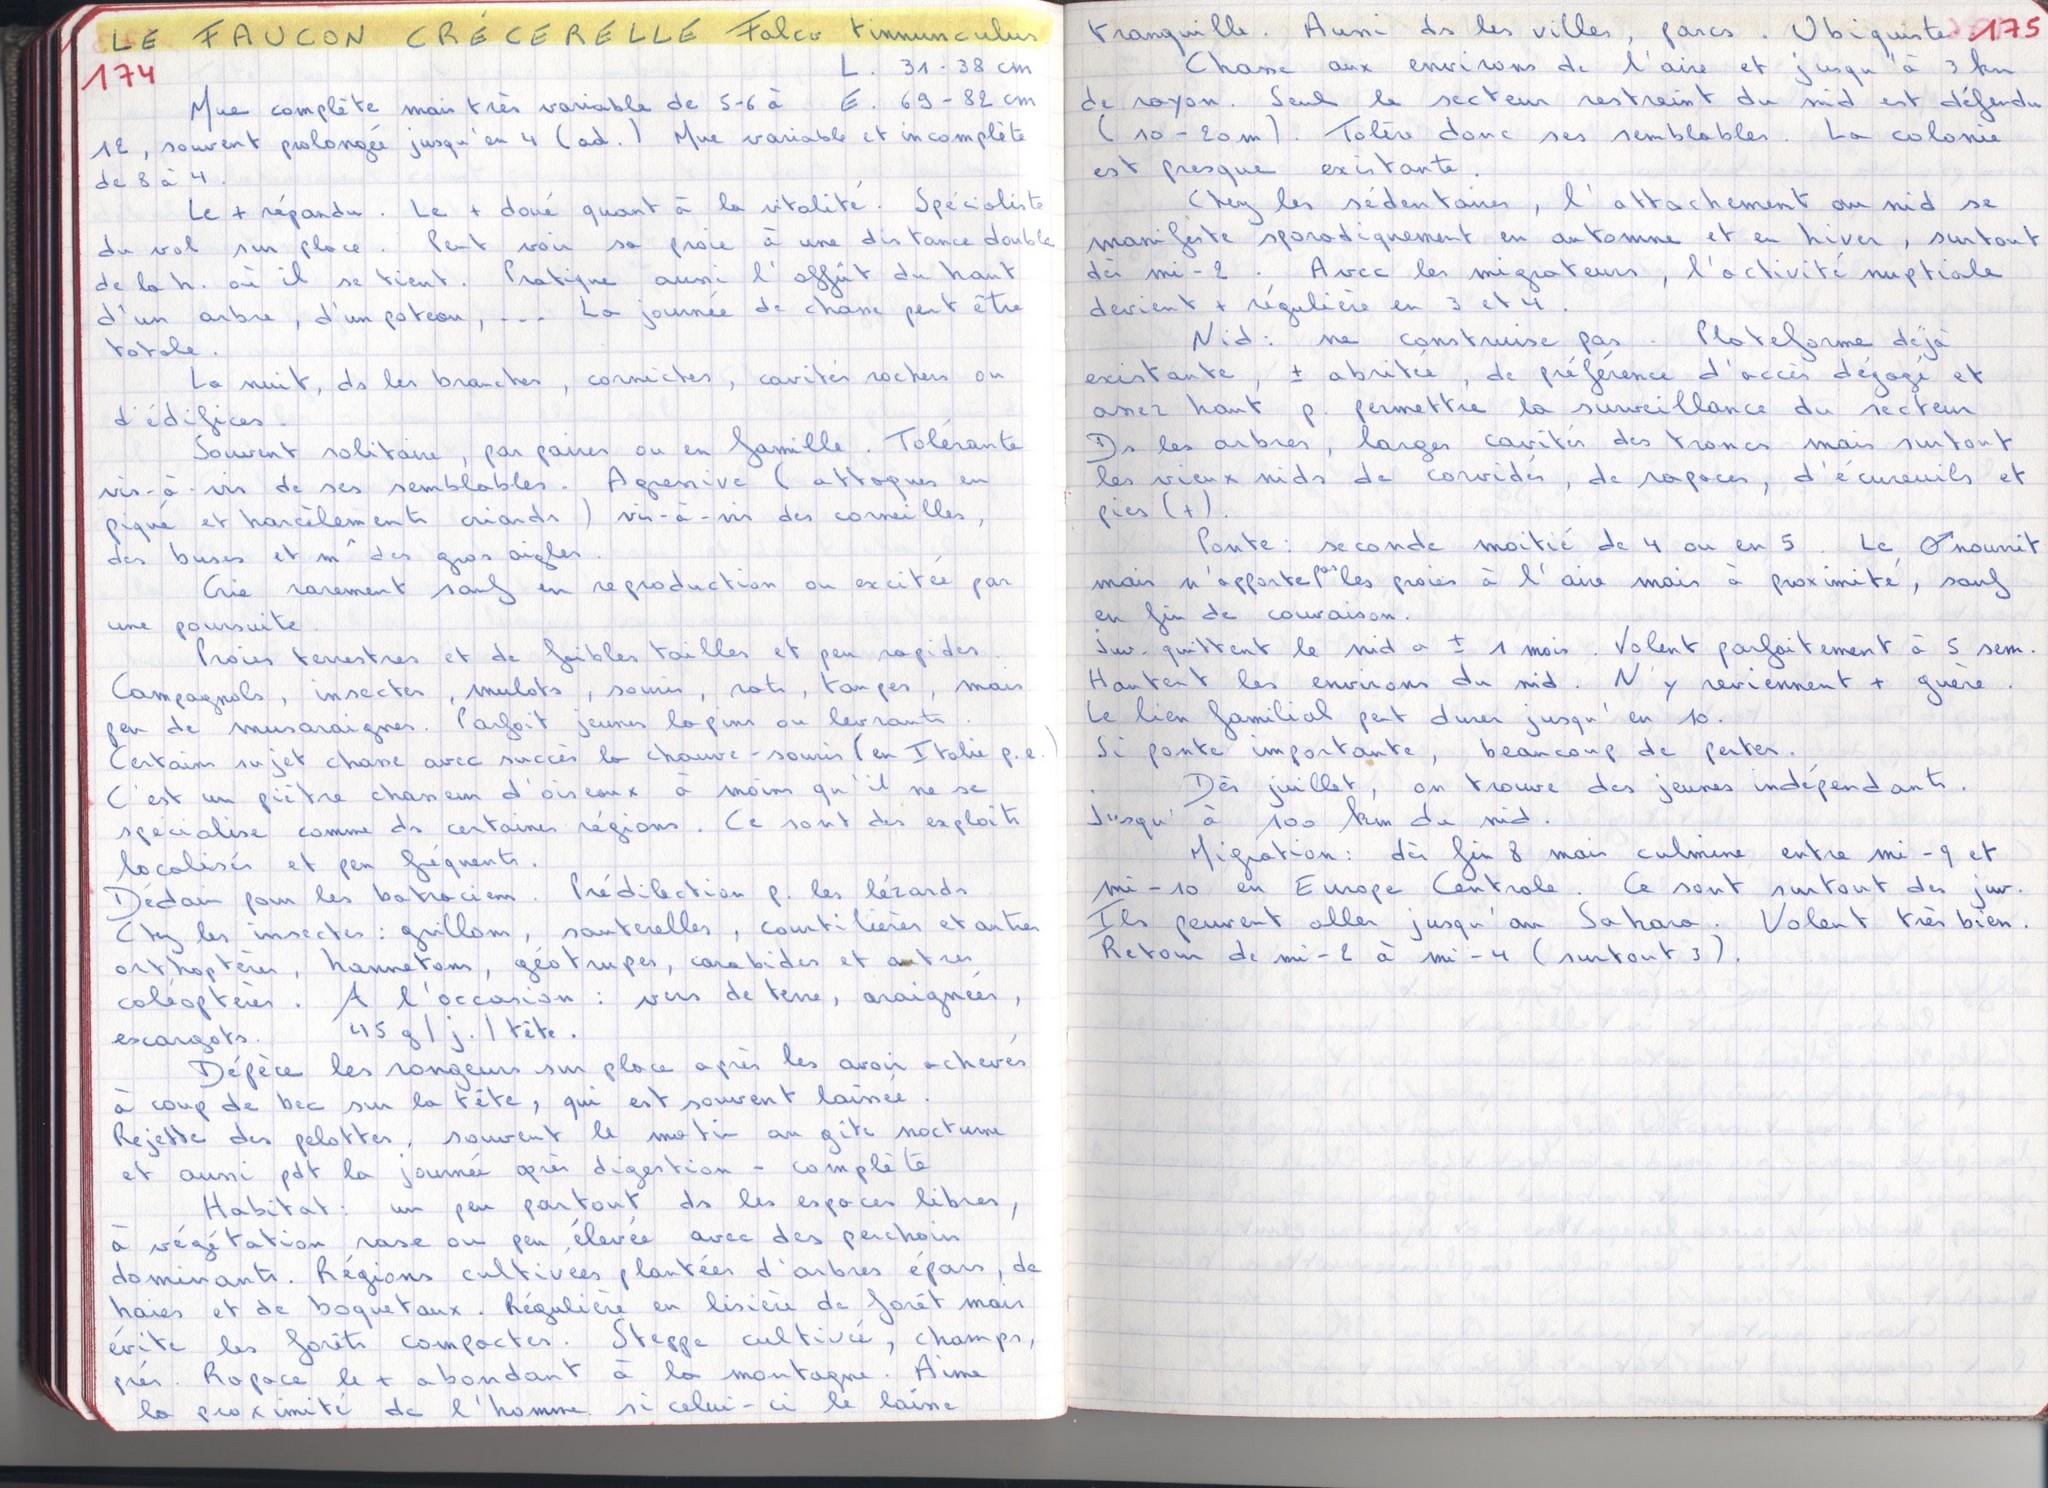 LE FAUCON CRÉCERELLE Falco tinnunculus
174
L. 31-38 cm
Mue complète mais très variable de 5-6 à E. 69-82 cm
12, souvent prolongée jusqu'en 4 (ad.) Mue variable et incomplète
de 8 à 4.
Le + répandu. Le + doué quant à la vitalité. Spécialiste
du vol sur place. Peut voir sa proie à une distance double
de la h. où il se tient. Pratique aussi l'affût du haut
d'un arbre, d'un poteau, ... La journée de chasse peut être
totale.
La nuit, ds les branches, corniches, cavités rochers ou
d'édifices.
Souvent solitaire, par paires ou en famille. Tolérante
vis-à-vis de ses semblables. Agressive (attaques en
piqué et harcèlements criards) vis-à-vis des corneilles,
des buses et m^ des gros aigles.
Crie rarement sauf en reproduction ou excitée par
une poursuite.
Proies terrestres et de faibles tailles et peu rapides.
Campagnols, insectes, mulots, souris, rats, taupes, mais
peu de musaraignes. Parfoit jeunes lapins ou levrauts.
Certains sujet chasse avec succès la chauve-souris (en Italie p.e.)
C'est un piètre chasseur d'oiseaux à moins qu'il ne se
spécialise comme ds certaines régions. Ce sont des exploits
localisés et peu fréquents.
Dédain pour les batraciens. Prédilection p. les lézards
Chez les insectes : grillons, sauterelles, courtilières et autres
orthoptères, hannetons, géotrupes, carabides et autres
coléoptères. A l'occasion : vers de terre, araignées,
escargots. 45 g/j./tête.
Dépèce les rongeurs sur place après les avoir achevés
à coup de bec sur la tête, qui est souvent laissée.
Rejette des pelottes, souvent le matin au gîte nocturne
et aussi pdt la journée après digestion - complète
Habitat : un peu partout ds les espaces libres,
à végétation rase ou peu élevée avec des perchoirs
dominants. Régions cultivées plantées d'arbres épars, de
haies et de boquetaux. Régulière en lisière de forêt mais
évite les forêts compactes. Steppe cultivée, champs,
prés. Rapace le + abondant à la montagne. Aime
la proximité de l'homme si celui-ci le laisse
tranquille. Aussi ds les villes, parcs. Ubiquiste 175
Chasse aux environs de l'aire et jusqu'à 3 km
de rayon. Seul le secteur restreint du nid est défendu
(10-20m). Tolère donc ses semblables. La colonie
est presque existante.
Chez les sédentaires, l'attachement au nid se
manifeste sporadiquement en automne et en hiver, surtout
dès mi-2. Avec les migrateurs, l'activité nuptiale
devient + régulière en 3 et 4.
Nid : ne construise pas. Plateforme déjà
existante, ± abritée, de préférence d'accès dégagé et
assez haut p. permettre la surveillance du secteur
Ds les arbres, larges cavités des troncs mais surtout
les vieux nids de corvidés, de rapaces, d'écureuils et
pies (+).
Ponte : seconde moitié de 4 ou en 5. Le ♂ nourrit
mais n'apporte pas les proies à l'aire mais à proximité, sauf
en fin de couvaison.
Juv. quittent le nid a ± 1 mois. Volent parfaitement à 5 sem.
Hantent les environs du nid. N'y reviennent + guère.
Le lien familial peut durer jusqu'en 10.
Si ponte importante, beaucoup de pertes.
Dès juillet, on trouve des jeunes indépendants.
Jusqu'à 100 km du nid.
Migration : dès fin 8 mais culmine entre mi-9 et
mi-10 en Europe Centrale. Ce sont surtout des juv.
Ils peuvent aller jusqu'au Sahara. Volent très bien.
Retour de mi-2 à mi-4 (surtout 3).